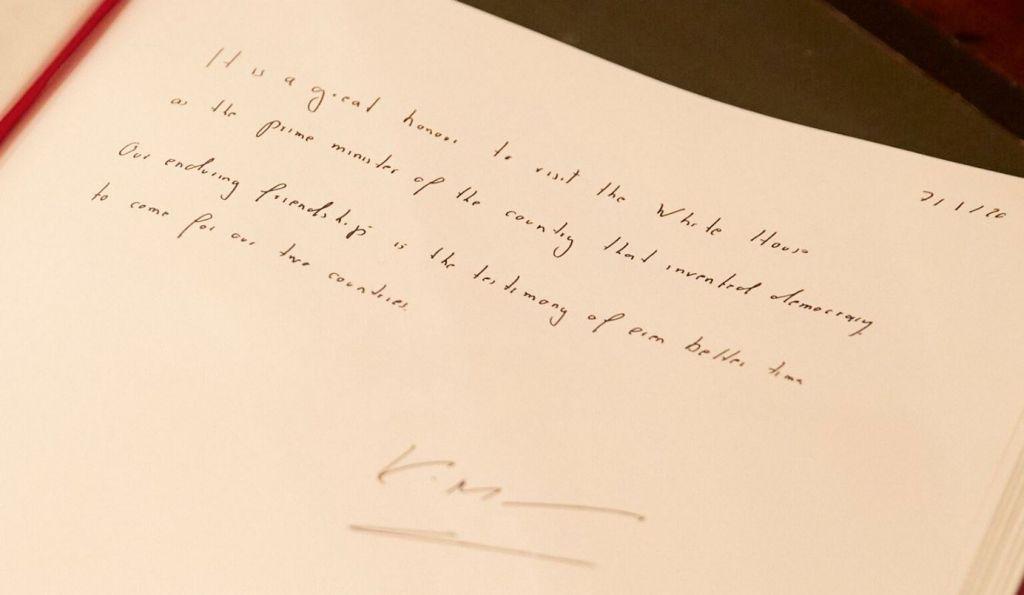 7/1/20
It is a great honour to visit the White House
as the prime minister of the country that invented democracy.
Our enduring friendship is the testimony of even better time
to come for our two countries.
K.M